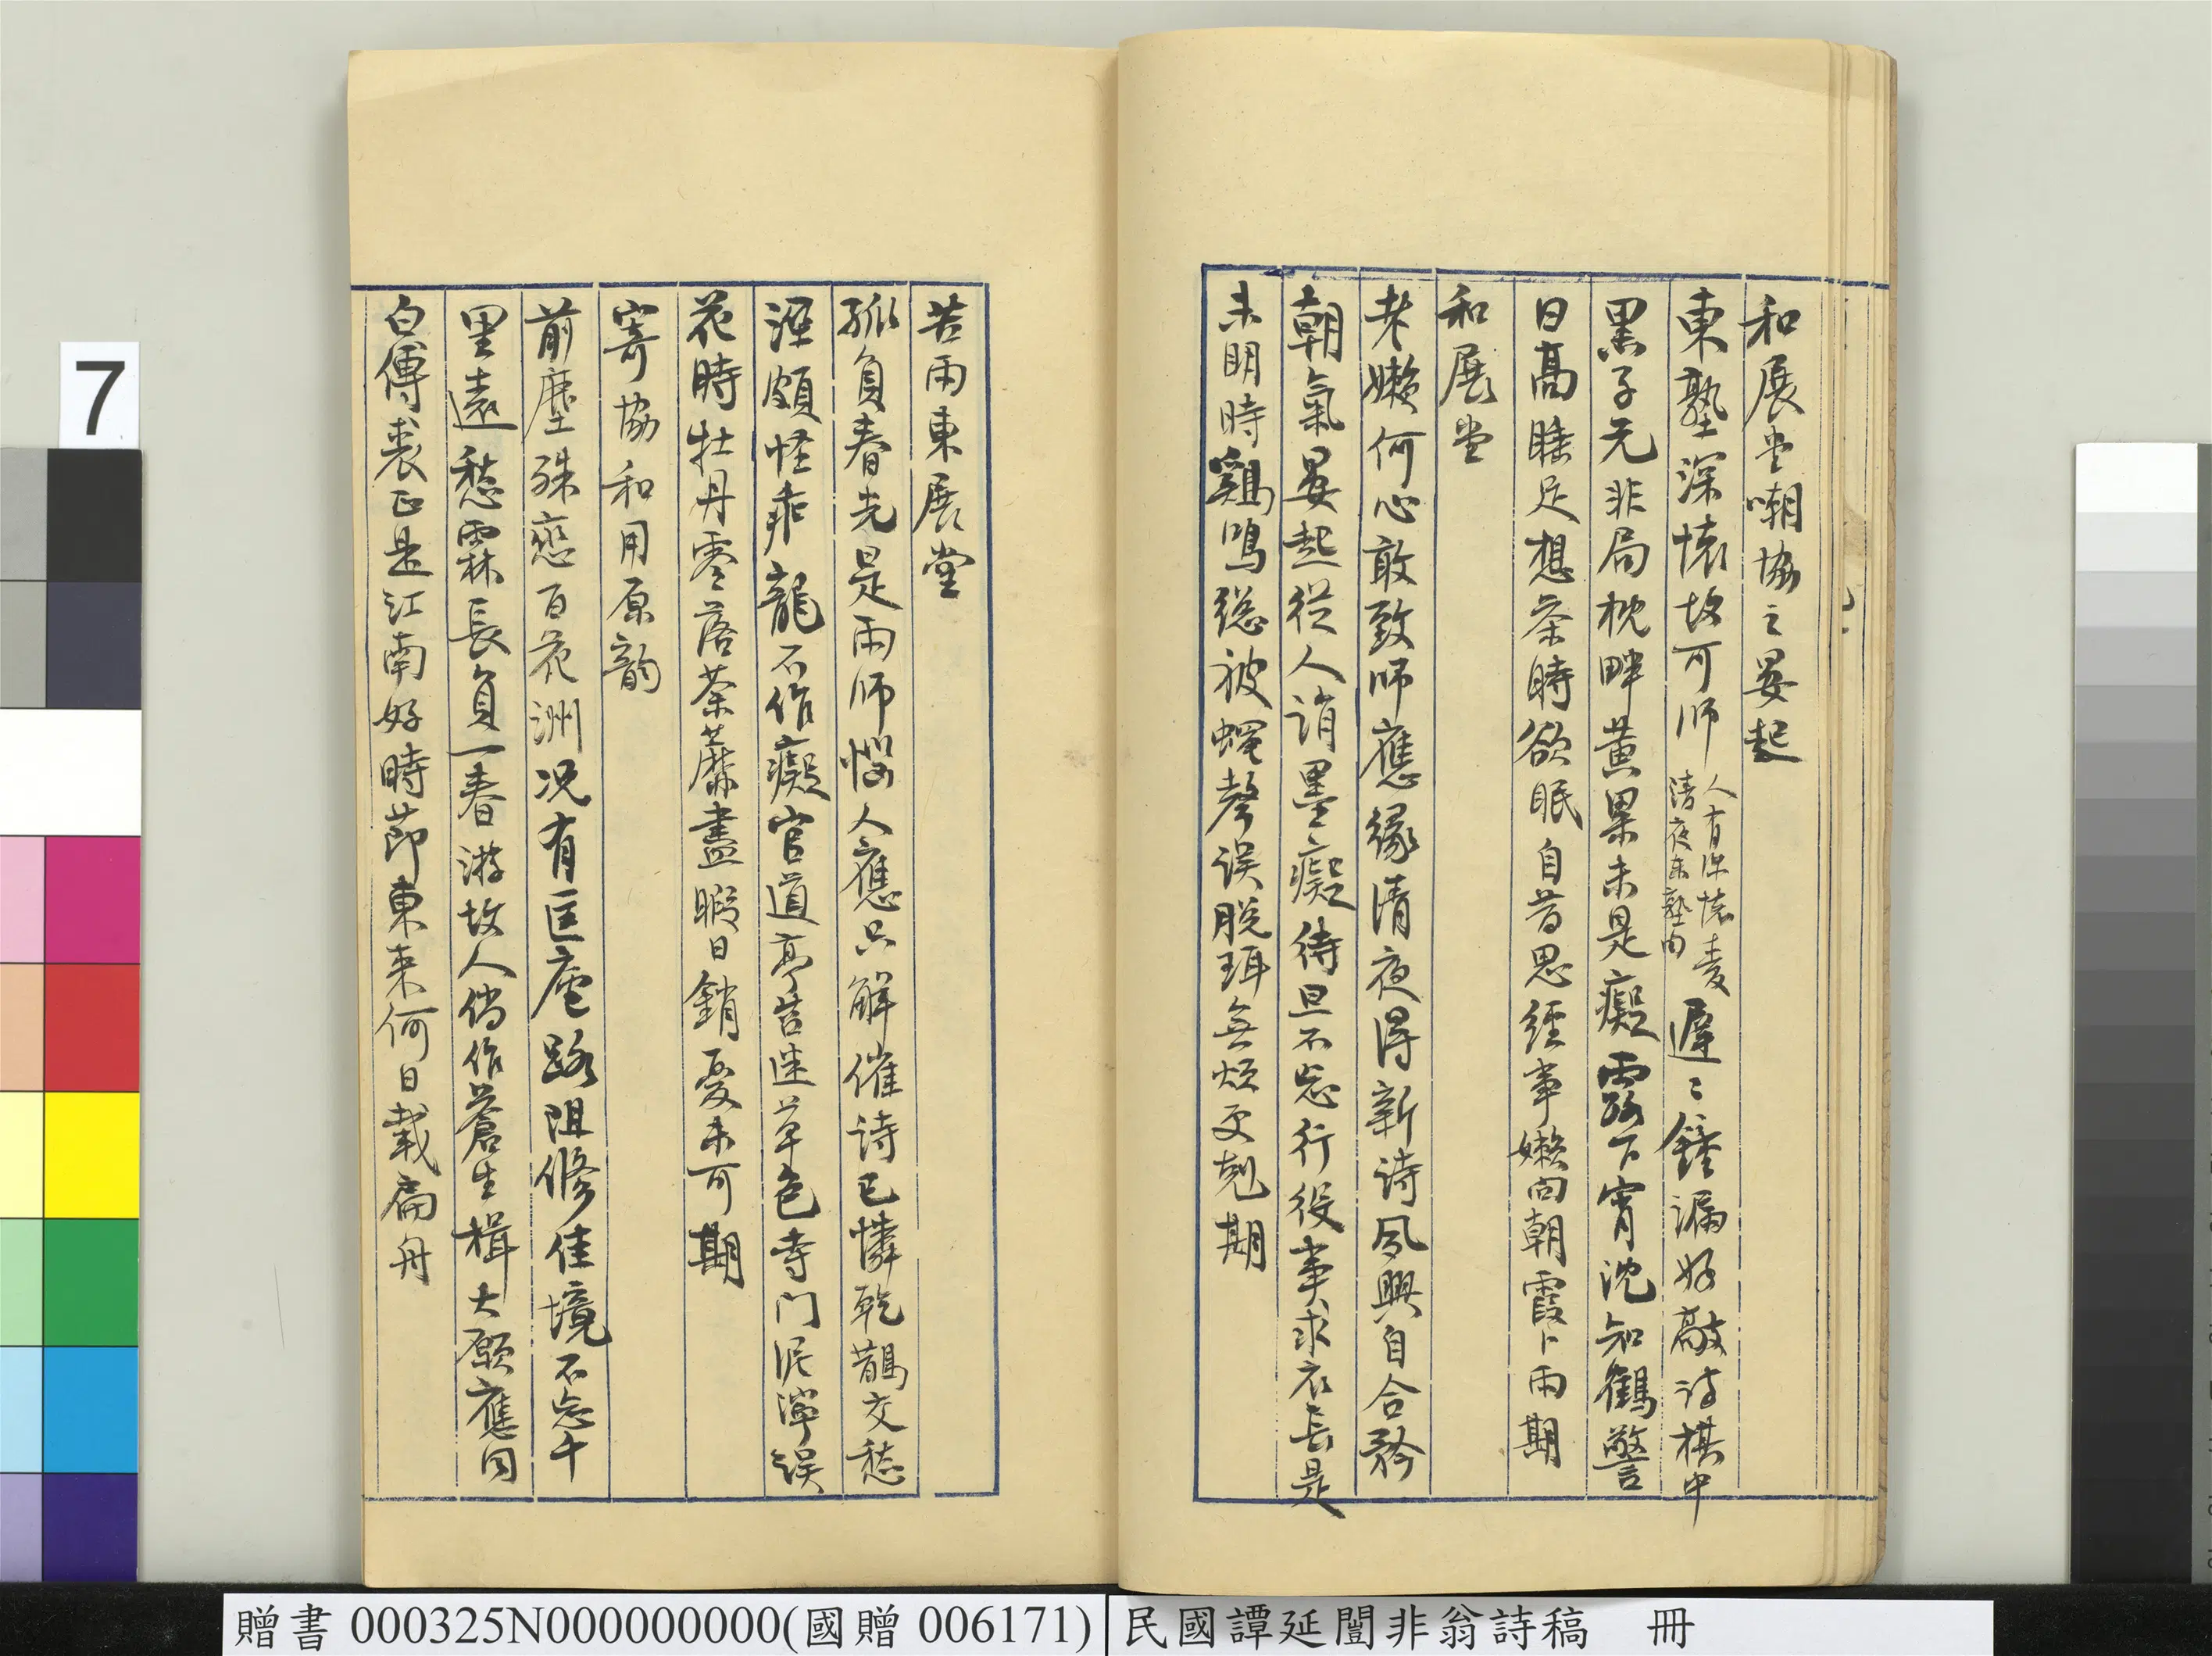 和展堂嘲協之晏起
東塾深懷故可師
人有深懷麦
清夜東塾内
遲〻鐘漏好敲詩棋中
黑子元非局枕畔黄果未是癡露下宵沈知鶴警
日高睡足想茶時欲眠自昔思經事嬾向朝霞卜雨期
和展堂
老嬾何心敢致師應緣清夜得新詩夙興自合矜
朝氣晏起從人誚墨癡待旦不忘行役事求衣長是
未明時鷄鳴總被蠅聲误脱珥無煩更剋期
苦雨柬展堂
孤負春光是雨师惱人應只解催诗已憐乾鵲交愁
溼頗怪乖龍不作癡官道亭皆迷草色寺门泥濘誤
花時牡丹零落荼蘼盡暇日銷憂未可期
寄協和用原韵
前塵殊戀百花洲况有匡廬路阻修佳境不忘千
里遠愁霖長負一春游故人倘作蒼生楫大願應同
白傅裘正是江南好時節東来何日載扁舟
7
贈書 000325N000000000(國贈 006171)
民國譚延闓非翁詩稿 冊